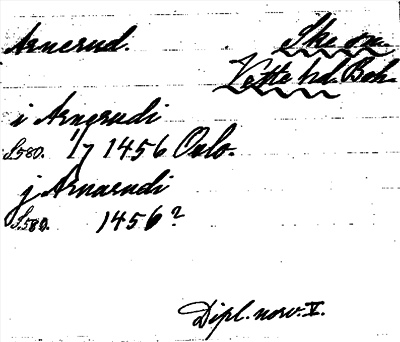 Arnerud. Ske sn.
Vette hd. Boh.
i Arngrudi
S. 580. 17/7 1456 Oslo.
j Arnarudi
S. 580. 1456?
Dipl. norv. V.